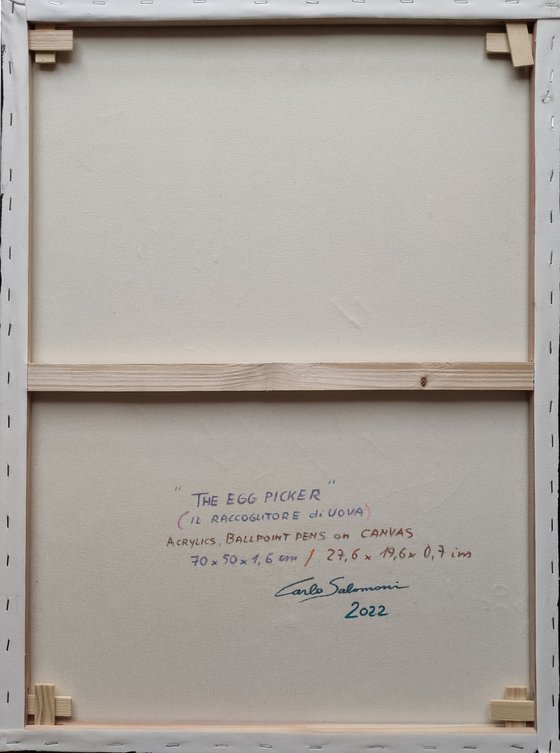 " THE EGG PICKER "
(IL RACCOGLITORE di UOVA)
ACRYLICS, BALLPOINT PENS on CANVAS
70 x 50 x 1,6 cm / 27,6 x 19,6 x 0,7 ins
Carlo Salomoni
2022